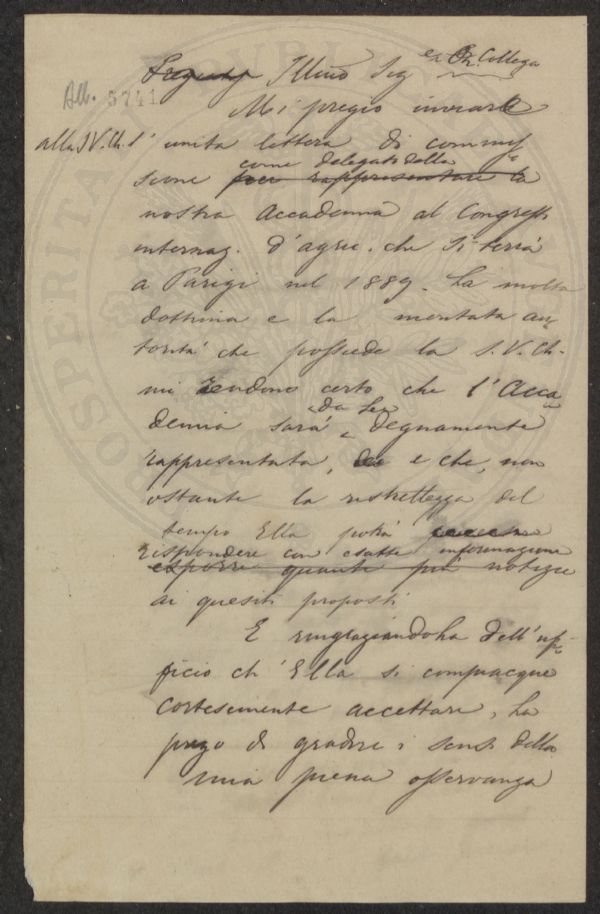 Pregiatmo Illmo Sig ed Ch. Collega
All. 5741
Mi pregio inviarle
alla S.V. Ch. l'unita lettera di commis-
sione per rappresentare la
come delegato della
nostra Accademia al Congresso
internaz. d'agric. che si terrà
a Parigi nel 1889. La molta
dottrina e la meritata au-
torità che possiede la S.V. Ch.
mi rendono certo che l'Acca-
demia sarà da Lei degnamente
rappresentata, e che, non
ostante la ristrettezza del
tempo Ella potrà
rispondere con esatte informazione
esporre quante più notizie
ai quesiti proposti
E ringraziandola dell'uf-
ficio ch'Ella si compiacque
cortesemente accettare, La
prego di gradire i sensi della
mia piena osservanza
PROSPERITATI PUBLICAE